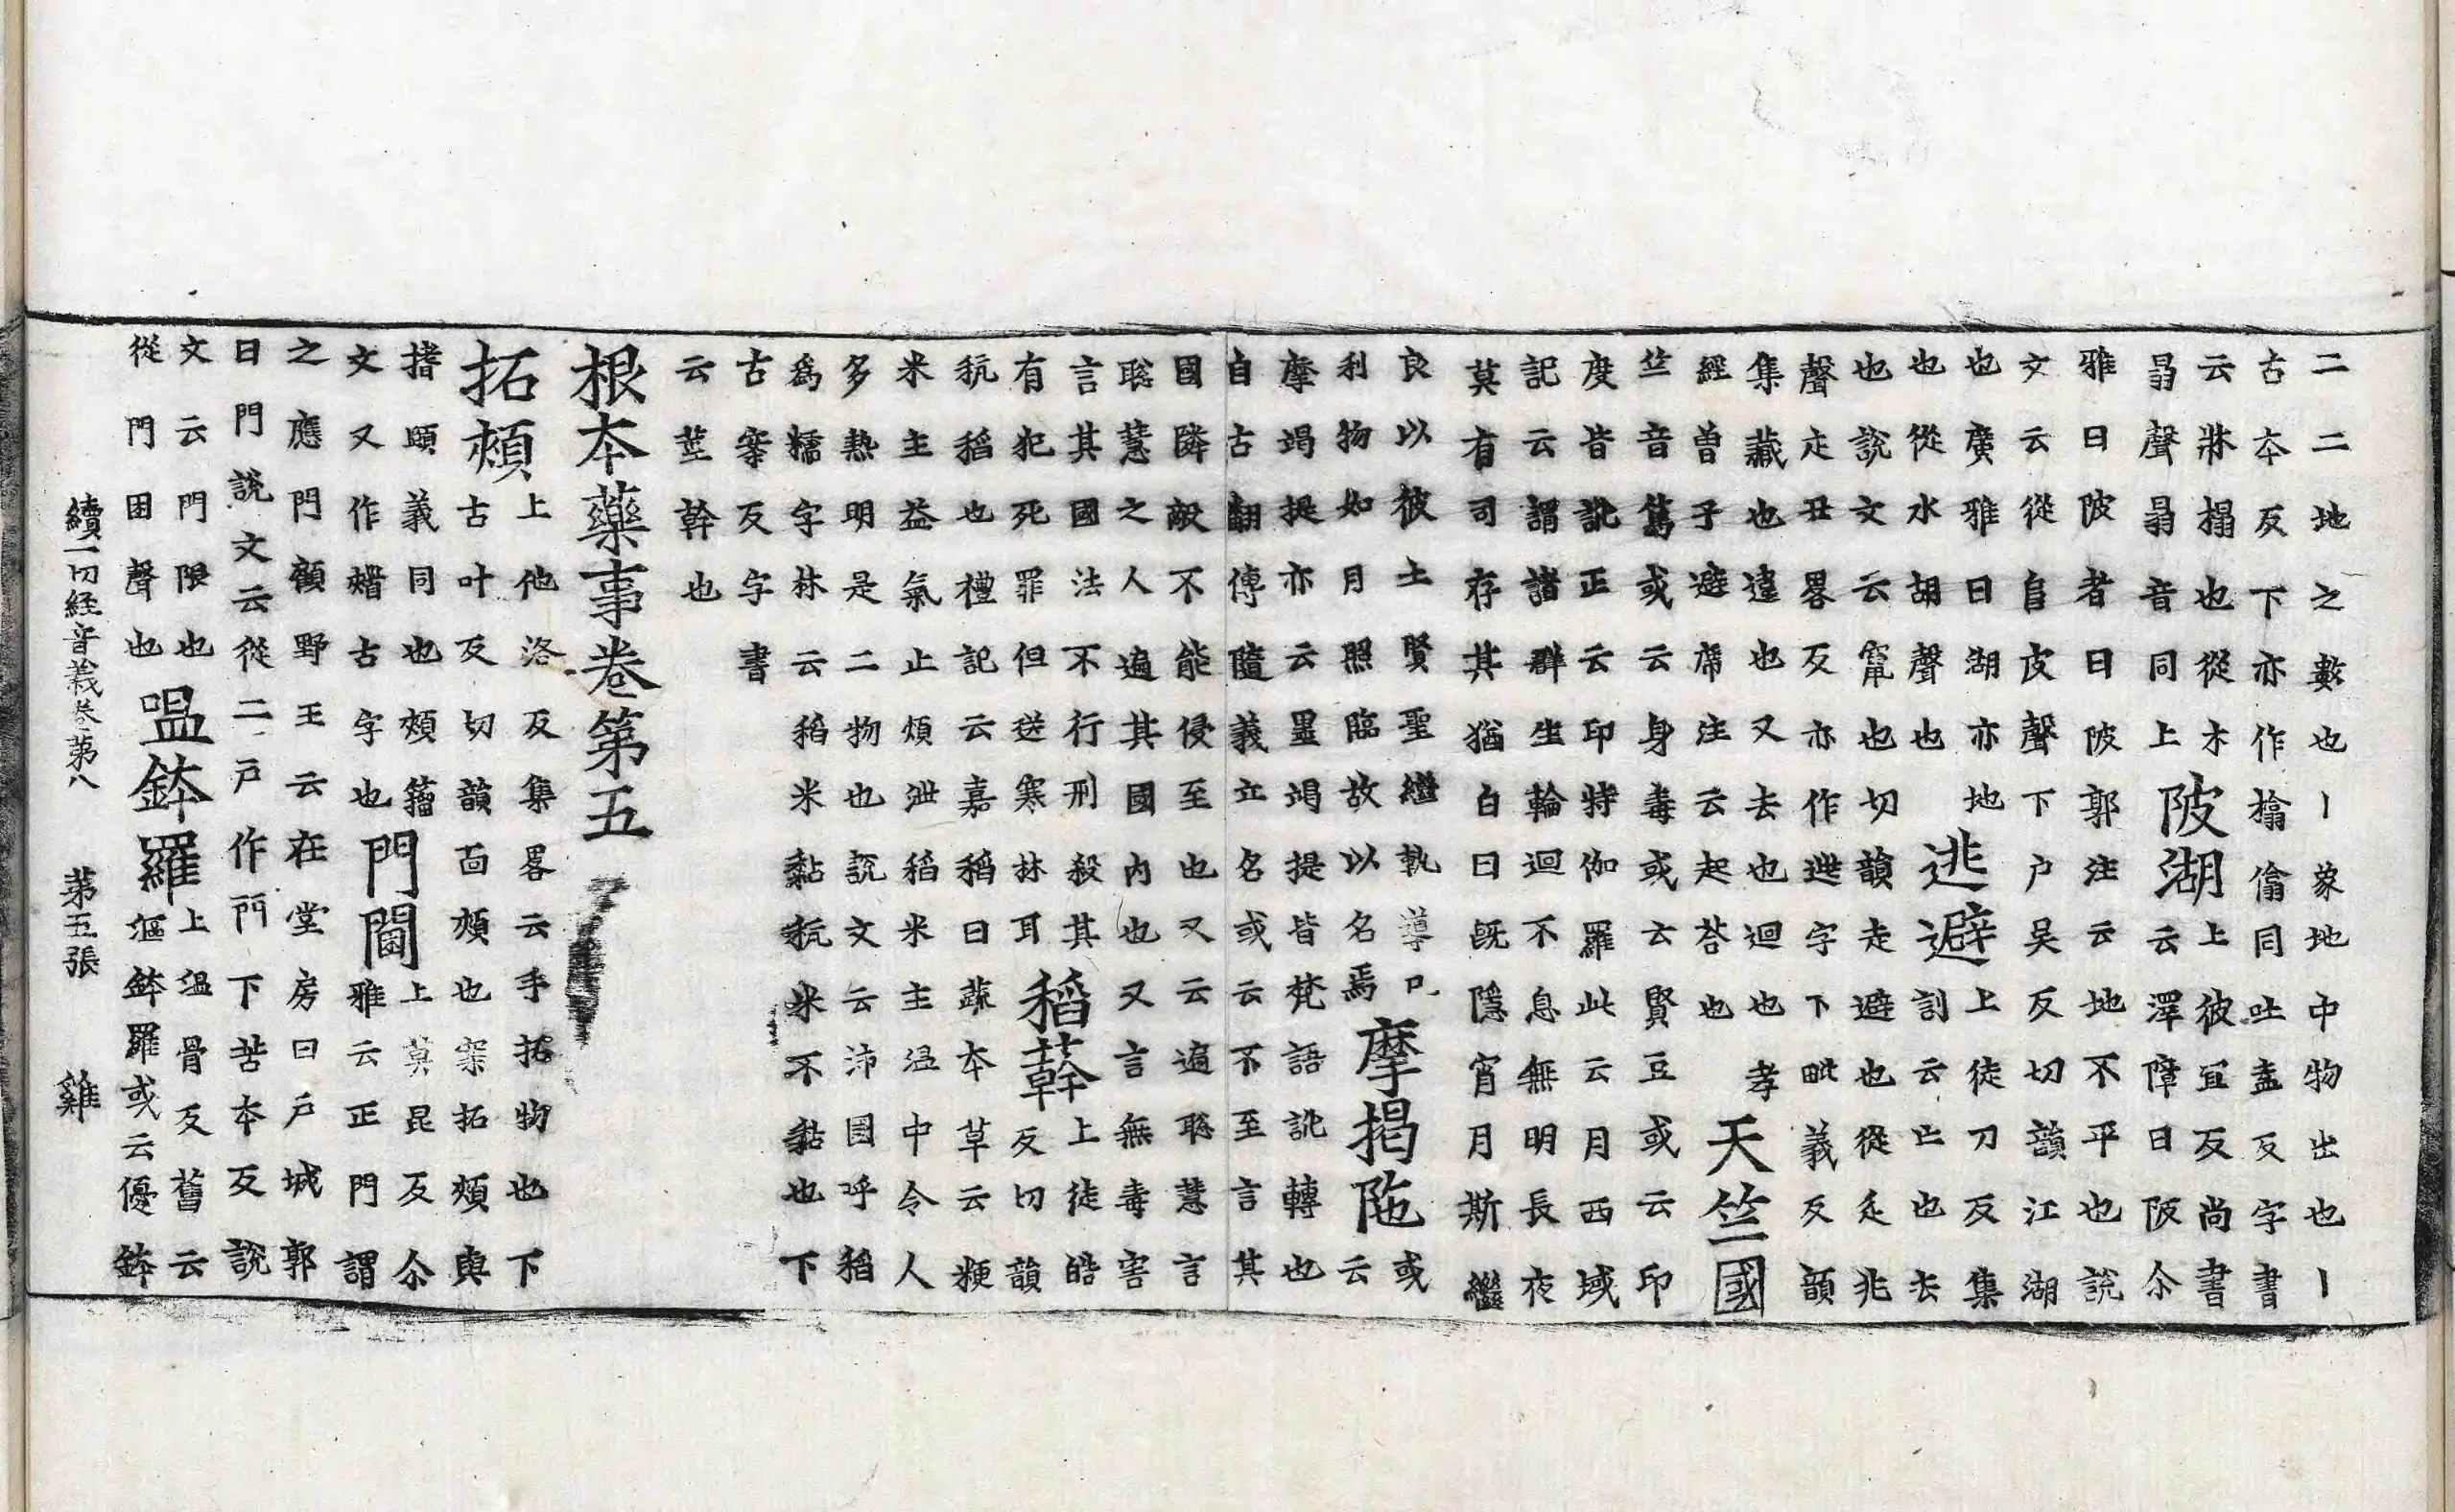 二二地之數也丨蒙地中物出也丨
古本反下亦作㯓傝同吐盍反字書
云牀榻也從木
㬱聲㬱音同上
陂湖
上彼宜反尚書
云澤障曰陂尒
雅曰陂者曰陂郭注云地不平也說
文云從𨸏皮聲下户吴反切韻江湖
也廣雅曰湖亦地
也從水胡聲也
逃避
上徒刀反集
訓云亡也去
也說文云竄也切韻走避也從辵兆
聲走丑畧反亦作迯字下毗義反韻
集蔵也違也又去也迴也孝
經曾子避席注云起荅也
天竺國
竺音篤或云身毒或云賢豆或云印
度皆訛正云印特伽羅此云月西域
記云謂諸群生輪迴不息無明長夜
莫有司存其猶白日既隱宵月斯繼
良以彼土賢聖繼執導凡
利物如月照臨故以名焉
摩揭陁
或云
摩竭提亦云墨竭提皆梵語訛轉也
自古翻傳隨義立名或云不至言其
國隣敵不能侵至也又云遍聡慧言
聡慧之人遍其國内也又言無毒害
言其國法不行刑殺其
有犯死罪但送寒林耳
稻䕞
上徒皓
反切韻
秔稻也禮記云嘉稻曰蔬本草云粳
米主益氣止煩泄稻米主温中令人
多熱明是二物也說文云沛國呼稻
為糯字林云稻米黏秔米不黏也下
古寒反字書
云莖幹也
根本藥事巻第五
拓頰
上他洛反集畧云手拓物也下
古叶反切韻面頰也案拓頰與
搘頤義同也頰籀
文又作㿓古字也
門閫
上莫昆反尒
雅云正門謂
之應門顧野王云在堂房曰户城郭
曰門說文云從二戸作門下苦本反說
文云門限也
從門困聲也
嗢鉢羅
上温骨反舊云
漚鉢羅或云優鉢
續一切経音義巻第八 第五張 雞